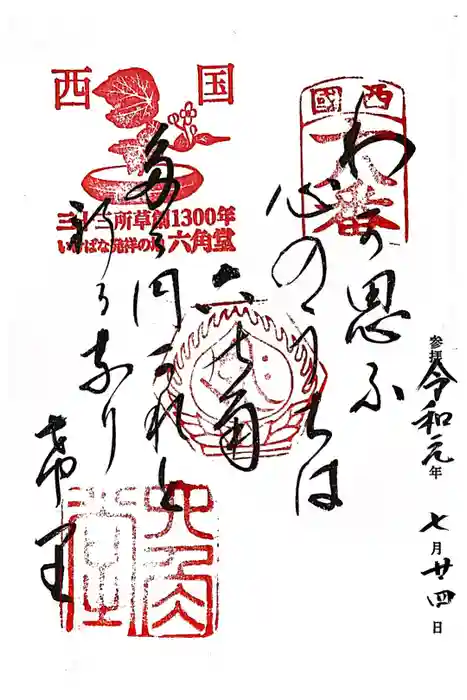 参拝 令和元年 七月廿四日
西國
十八番
わが思ふ
心のうちは
六の角
たゞ円かれと
祈るなり
西国
三十三所草創1300年
いけばな発祥の地 六角堂
六角堂